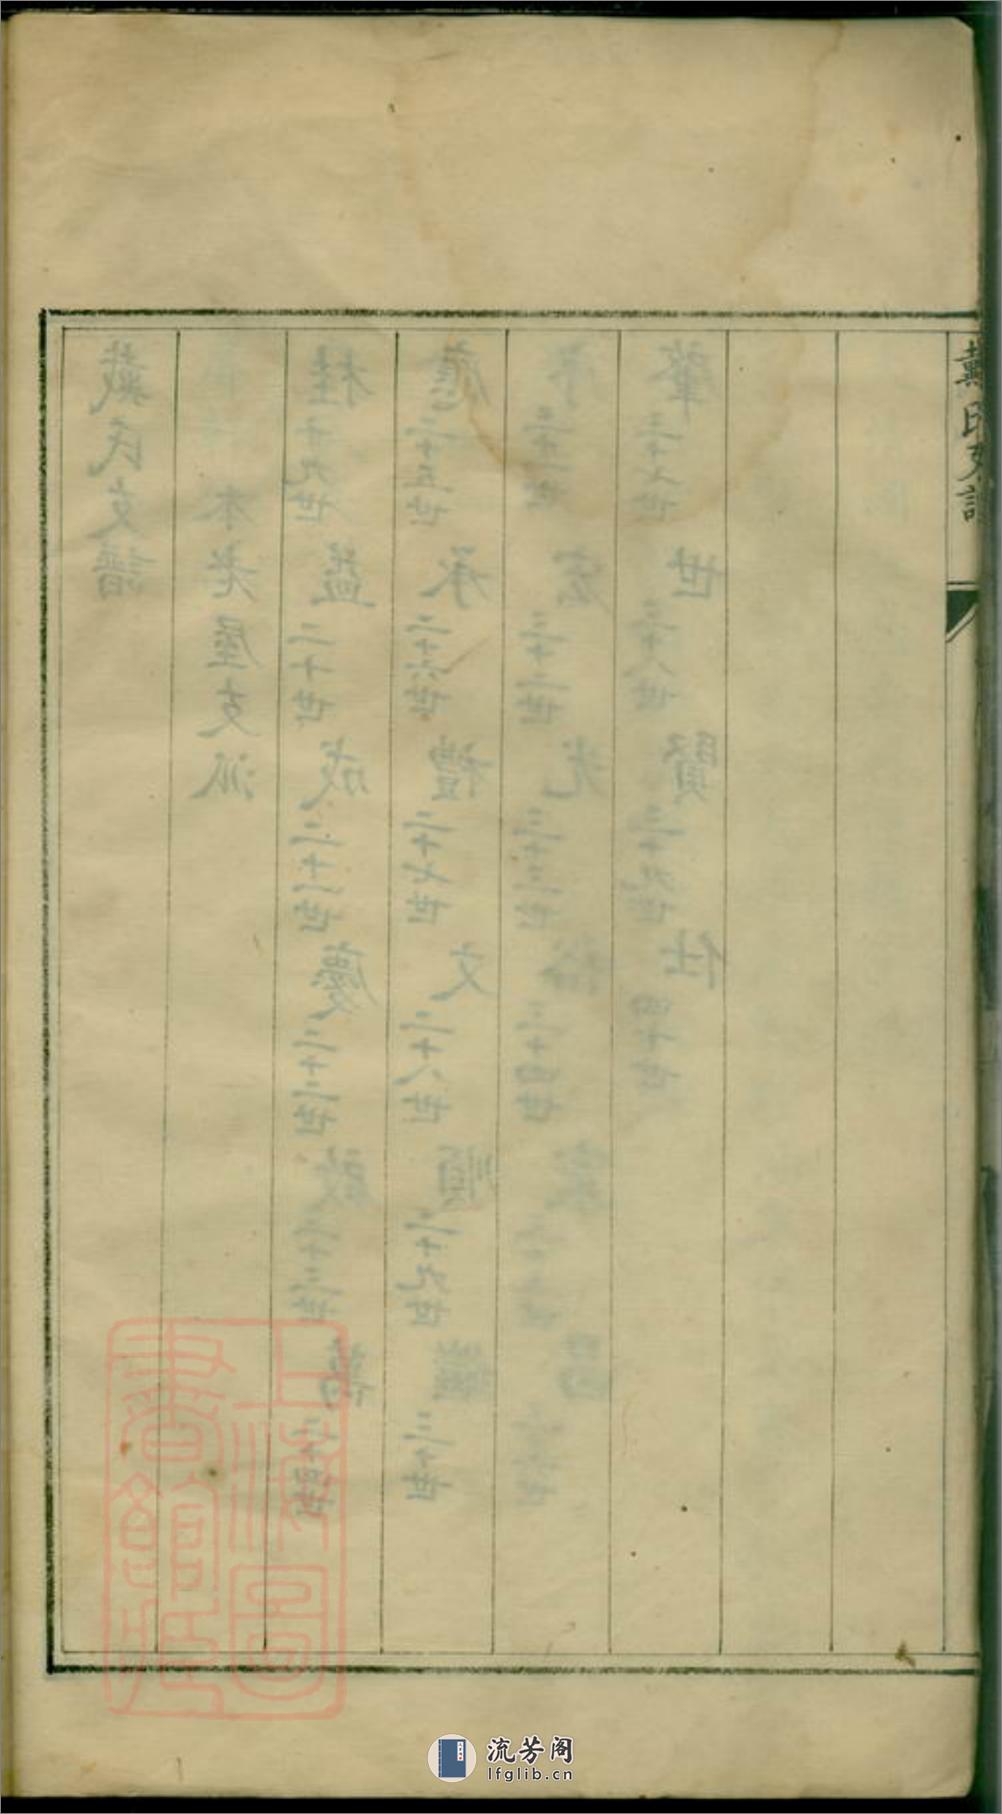 戴氏支譜
戴氏支譜
本老屋支派
桂 十九世 益 二十世 成 二十一世 慶 二十二世 啟 二十三世 萬 二十四世
應 二十五世 承 二十六世 禮 二十七世 文 二十八世 順 二十九世 三十世
序 三十一世 宏 三十二世 光 三十三世 裕 三十四世 家 昌
肇 三十七世 世 三十八世 賢 三十九世 仕 四十世
上海圖
書館藏
流芳阁
lfglib.cn